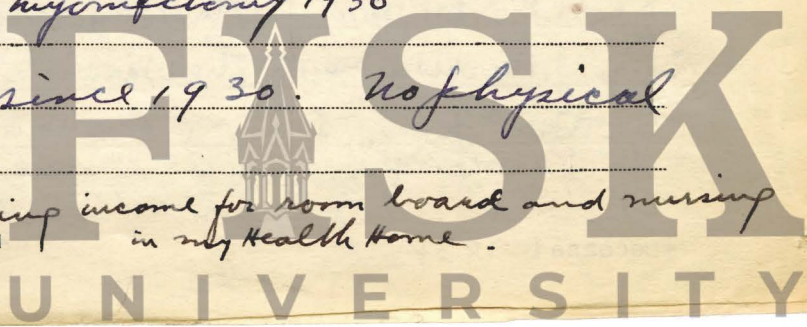 myomectomy 1930
since 1930. No physical
ing income for room board and nursing
in my Health Home.
FISK
UNIVERSITY